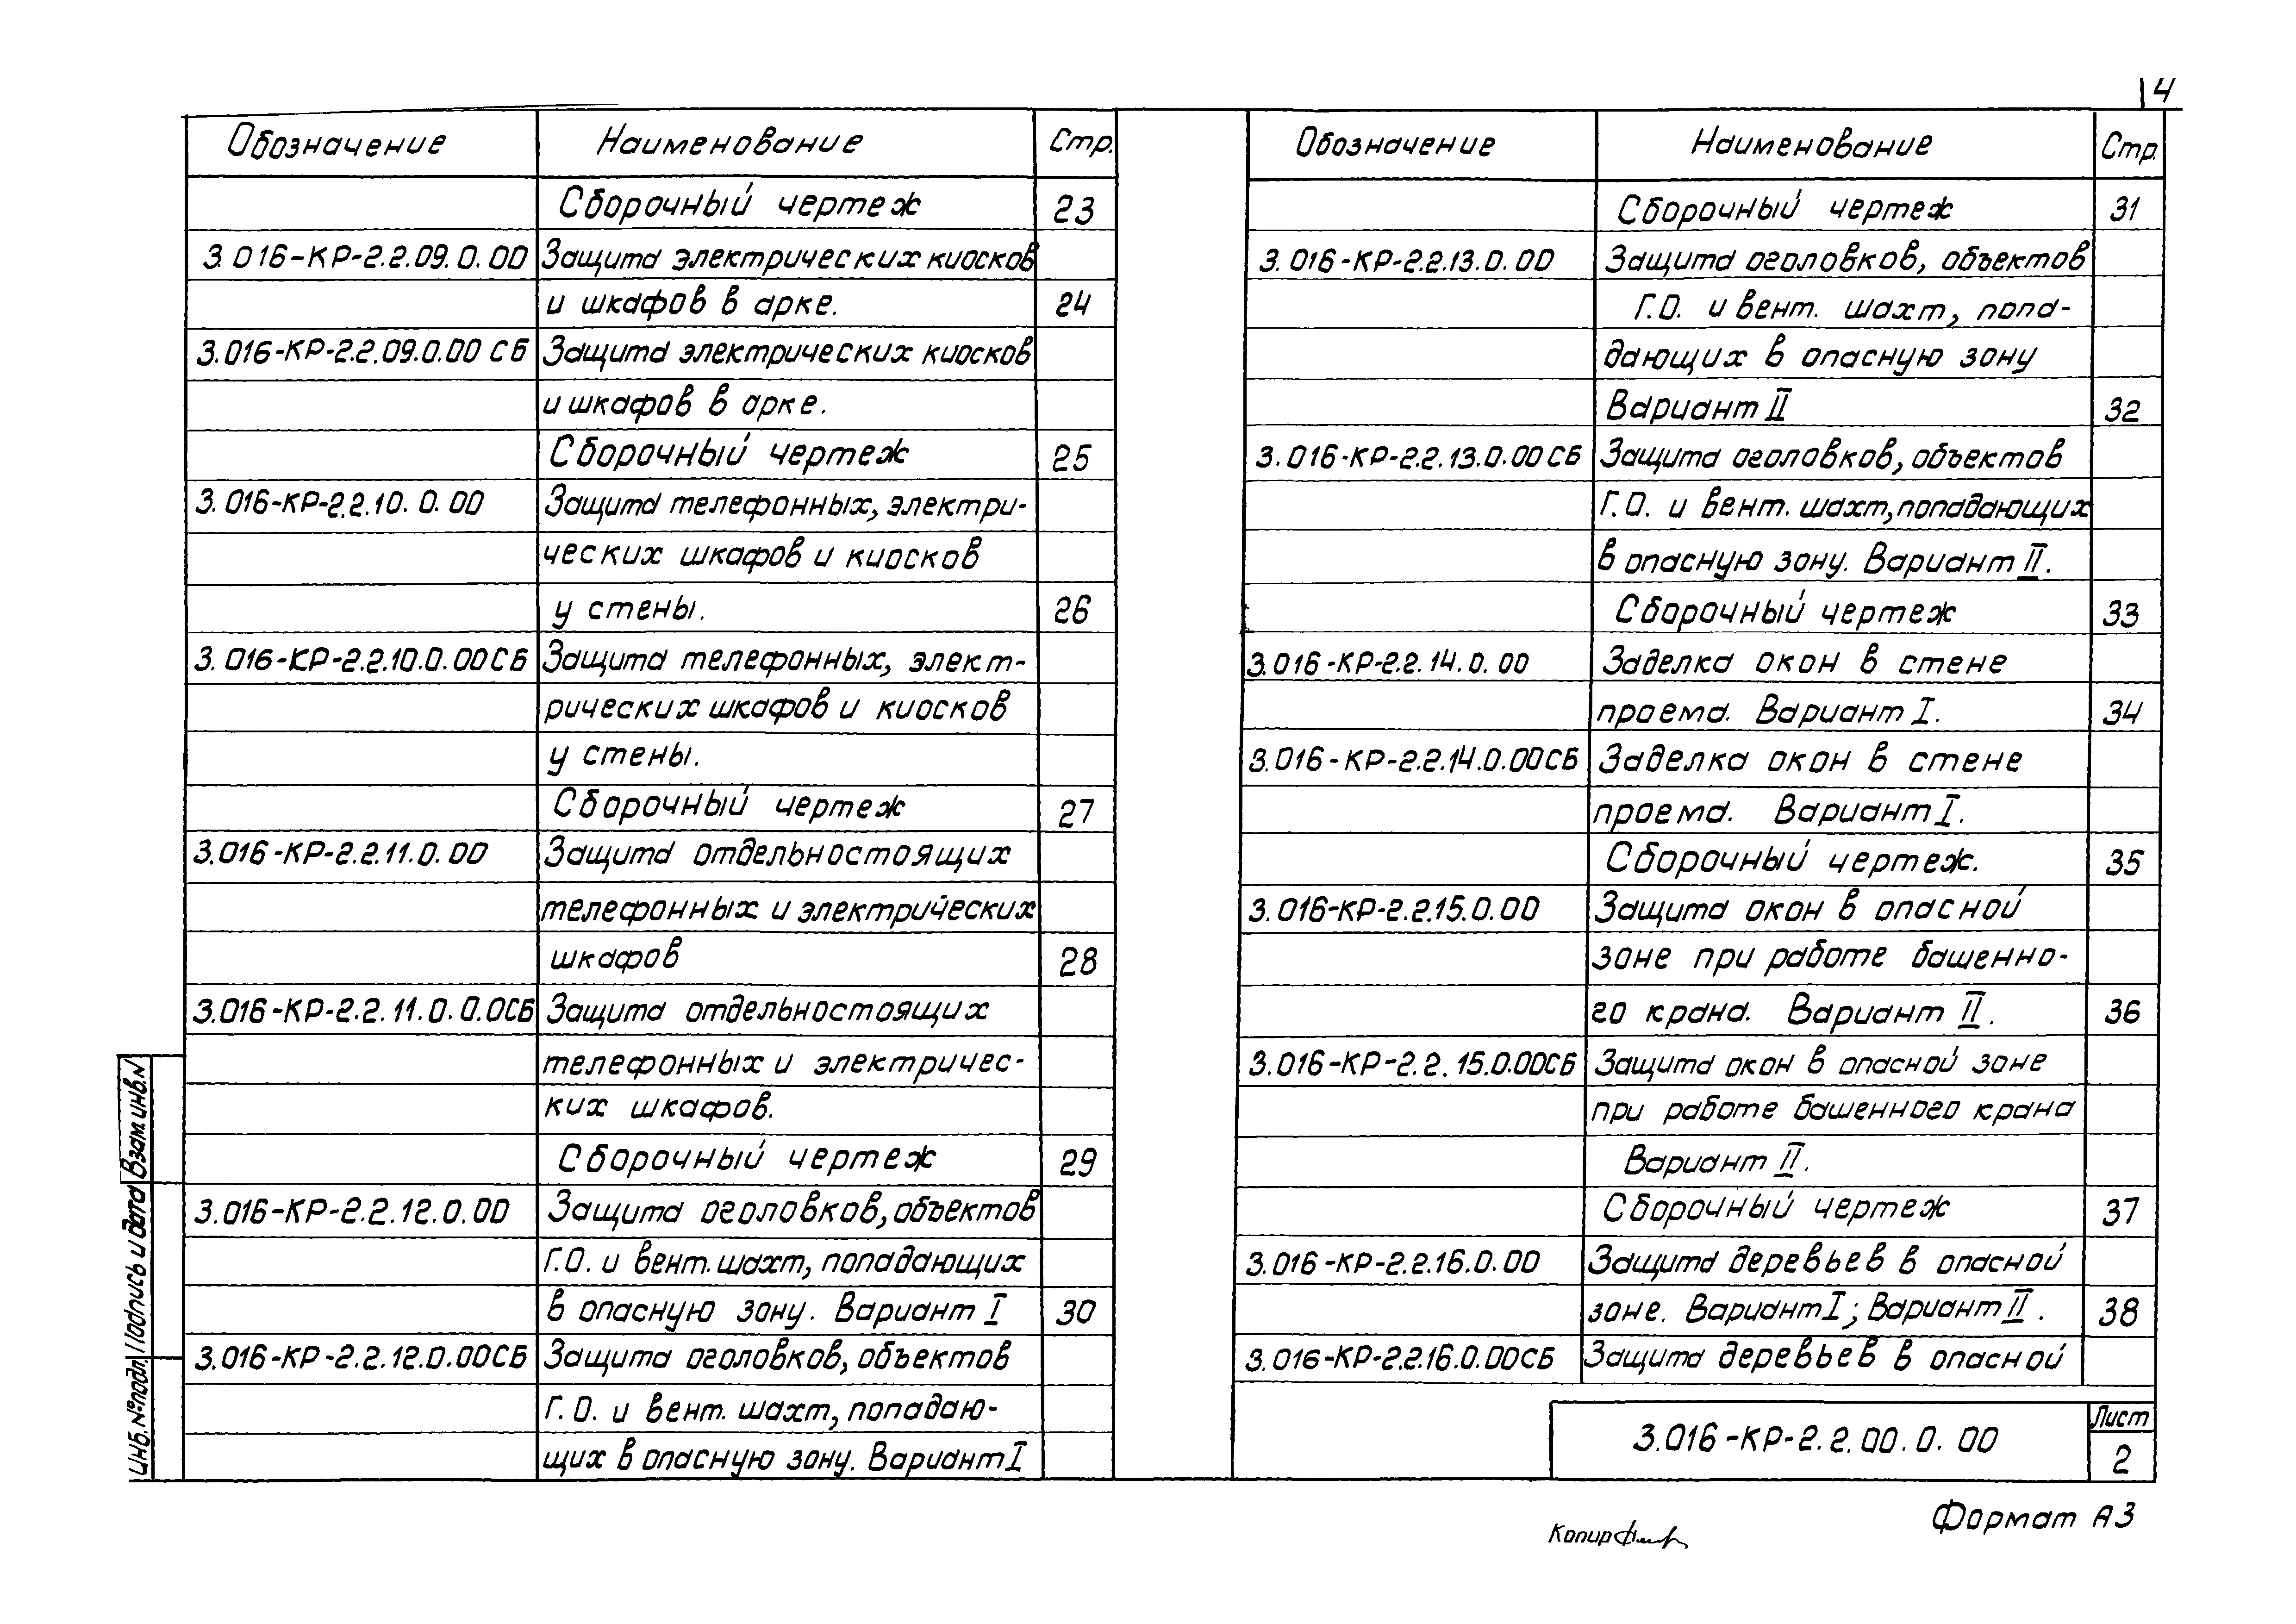 4
Обозначение Наименование Стр.
Сборочный чертеж 23
3.016-КР-2.2.09.0.00 Защита электрических киосков
и шкафов в арке. 24
3.016-КР-2.2.09.0.00 СБ Защита электрических киосков
и шкафов в арке.
Сборочный чертеж 25
3.016-КР-2.2.10.0.00 Защита телефонных, электри-
ческих шкафов и киосков
у стены. 26
3.016-КР-2.2.10.0.00СБ Защита телефонных, элект-
рических шкафов и киосков
у стены.
Сборочный чертеж 27
3.016-КР-2.2.11.0.00 Защита отдельностоящих
телефонных и электрических
шкафов 28
3.016-КР-2.2.11.0.0.0СБ Защита отдельностоящих
телефонных и электричес-
ких шкафов.
Сборочный чертеж 29
3.016-КР-2.2.12.0.00 Защита оголовков, объектов
Г.О. и вент. шахт, попадающих
в опасную зону. Вариант I 30
3.016-КР-2.2.12.0.00СБ Защита оголовков, объектов
Г.О. и вент. шахт, попадаю-
щих в опасную зону. Вариант I
Обозначение Наименование Стр.
Сборочный чертеж 31
3.016-КР-2.2.13.0.00 Защита оголовков, объектов
Г.О. и вент. шахт, попа-
дающих в опасную зону
Вариант II 32
3.016-КР-2.2.13.0.00СБ Защита оголовков, объектов
Г.О. и вент. шахт, попадающих
в опасную зону. Вариант II.
Сборочный чертеж 33
3.016-КР-2.2.14.0.00 Заделка окон в стене
проема. Вариант I. 34
3.016-КР-2.2.14.0.00СБ Заделка окон в стене
проема. Вариант I.
Сборочный чертеж. 35
3.016-КР-2.2.15.0.00 Защита окон в опасной
зоне при работе башенно-
го крана. Вариант II. 36
3.016-КР-2.2.15.0.00СБ Защита окон в опасной зоне
при работе башенного крана
Вариант II.
Сборочный чертеж 37
3.016-КР-2.2.16.0.00 Защита деревьев в опасной
зоне. Вариант I; Вариант II. 38
3.016-КР-2.2.16.0.00СБ Защита деревьев в опасной
3.016-КР-2.2.00.0.00 Лист
2
Инв.№подл. Подпись и дата Взам.инв.N
Копир
Формат А3